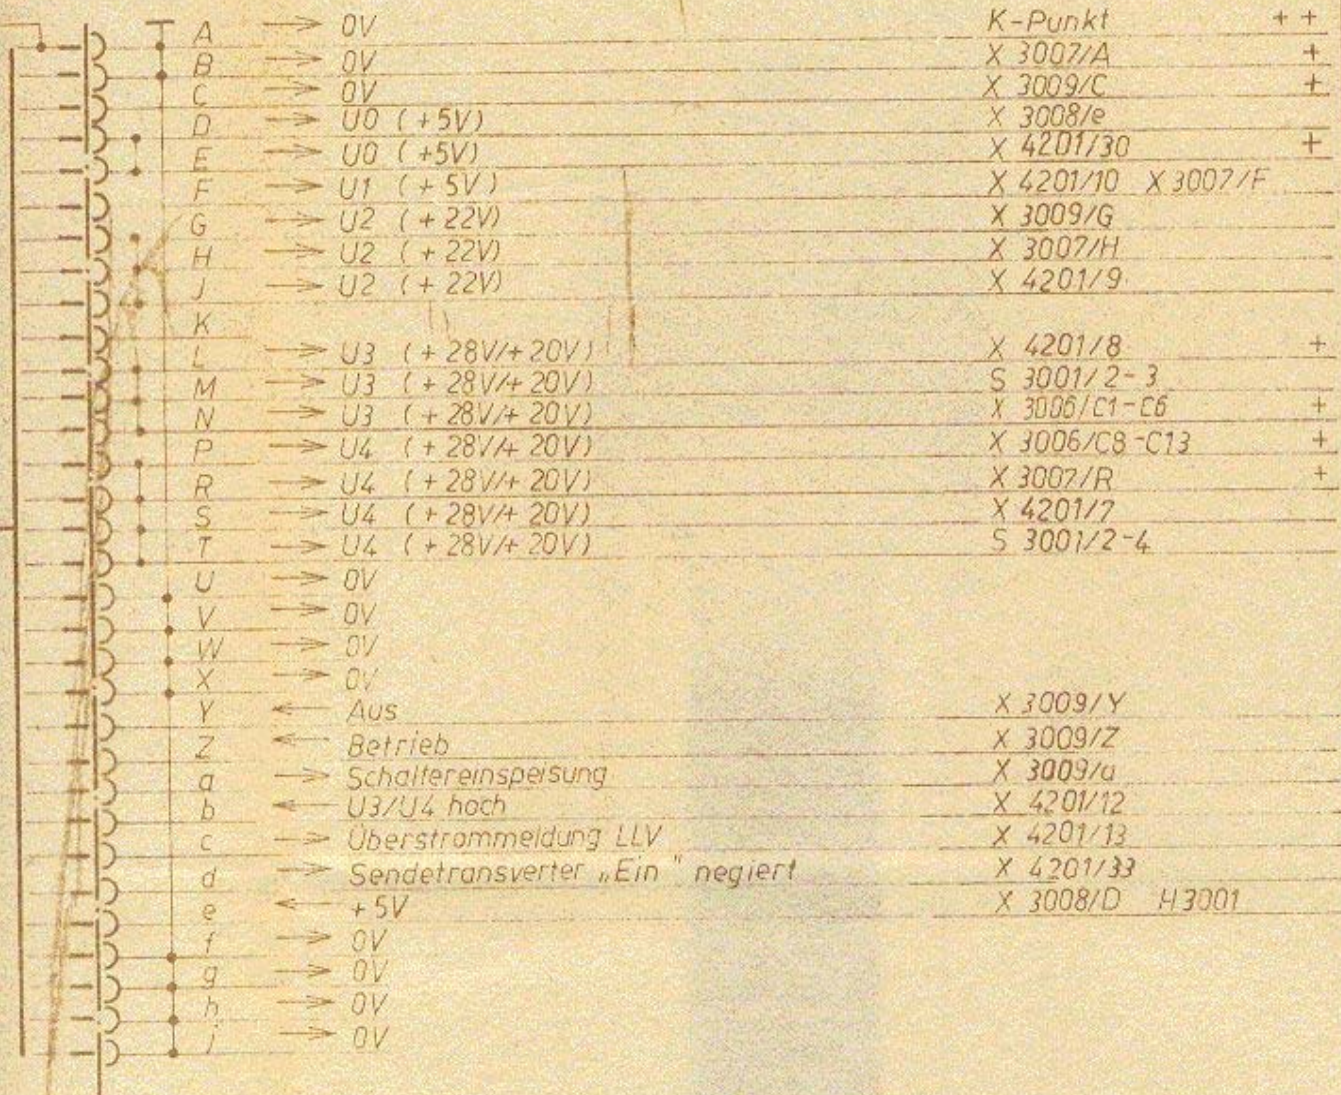 A → 0V K-Punkt + +
B → 0V X 3007/A +
C → 0V X 3009/C +
D → U0 (+5V) X 3008/e
E → U0 (+5V) X 4201/30 +
F → U1 (+5V) X 4201/10 X 3007/F
G → U2 (+22V) X 3009/G
H → U2 (+22V) X 3007/H
J → U2 (+22V) X 4201/9
K
L → U3 (+28V/+20V) X 4201/8 +
M → U3 (+28V/+20V) S 3001/2-3
N → U3 (+28V/+20V) X 3006/C1-C6 +
P → U4 (+28V/+20V) X 3006/C8-C13 +
R → U4 (+28V/+20V) X 3007/R +
S → U4 (+28V/+20V) X 4201/7
T → U4 (+28V/+20V) S 3001/2-4
U → 0V
V → 0V
W → 0V
X → 0V
Y ← Aus X 3009/Y
Z ← Betrieb X 3009/Z
a → Schaltereinspeisung X 3009/a
b ← U3/U4 hoch X 4201/12
c → Überstrommeldung LLV X 4201/13
d → Sendetransverter „Ein" negiert X 4201/33
e ← +5V X 3008/D H3001
f → 0V
g → 0V
h → 0V
j → 0V